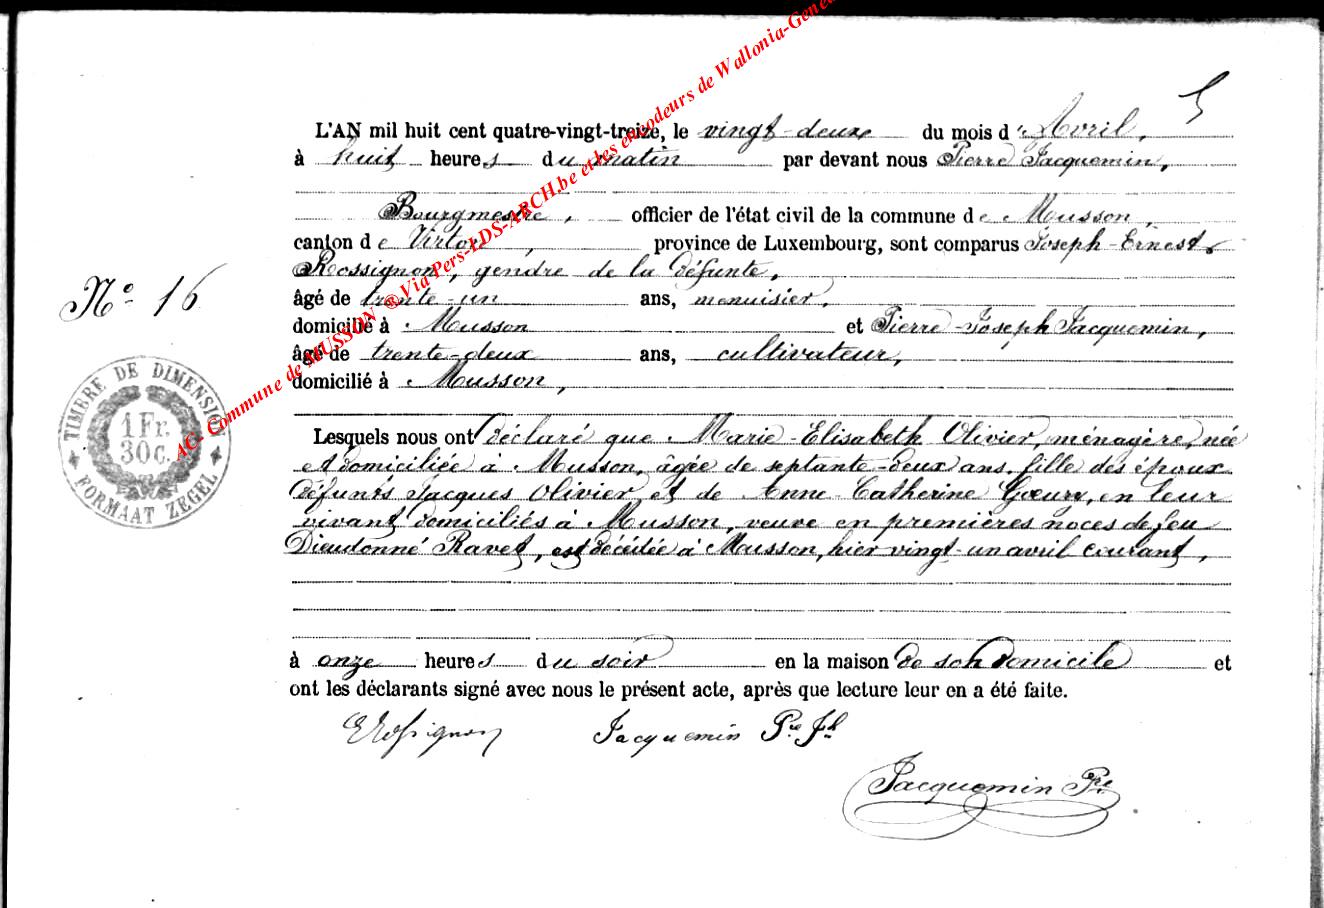 AC- Commune de MUSSON ® Via Pers-LDS-ARCH.be et les encodeurs de Wallonia-Gene
5
L'AN mil huit cent quatre-vingt-treize, le vingt-deux du mois d'Avril,
à huit heures du matin par devant nous Pierre Jacquemin,
Bourgmestre, officier de l'état civil de la commune de Musson,
canton de Virton, province de Luxembourg, sont comparus Joseph-Ernest
Rossignon, gendre de la défunte,
âgé de trente-un ans, menuisier,
domicilié à Musson et Pierre-Joseph Jacquemin,
âgé de trente-deux ans, cultivateur,
domicilié à Musson,
N° 16
TIMBRE DE DIMENSION
1 Fr.
30 C.
FORMAAT ZEGEL
Lesquels nous ont déclaré que Marie-Elisabeth Olivier, ménagère, née
et domiciliée à Musson, âgée de septante-deux ans, fille des époux
défunts Jacques Olivier et de Anne-Catherine Gœury, en leur
vivant domiciliés à Musson, veuve en premières noces de feu
Dieudonné Ravet, est décédée à Musson, hier vingt-un avril courant,
à onze heures du soir en la maison de son domicile et
ont les déclarants signé avec nous le présent acte, après que lecture leur en a été faite.
ERossignon Jacquemin Pre Jh
Jacquemin Pre